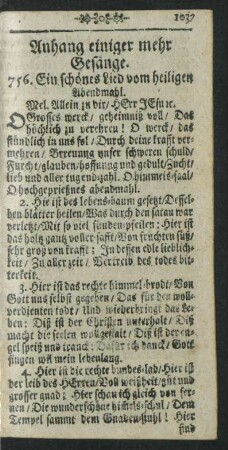 1037
Anhang einiger mehr
Gesänge.
756. Ein schönes Lied vom heiligen
Abendmahl.
Mel. Allein zu dir/ HErr JEsu ꝛc.
O Grosses werck/ geheimniß voll/ Das
höchlich zu verehren! O werck/ das
stündlich in uns sol/ Durch deine krafft ver-
mehren/ Bereuung unser schweren schuld/
Furcht/ glauben/ hoffnung und gedult/ Zucht/
lieb und aller tugend-zahl. O himmels-saal/
O hochgepriesnes abendmahl.
2. Hie ist des lebens-baum gesetzt/ Dessel-
ben blätter heilen/ Was durch den satan war
verletzt/ Mit so viel sünden-pfeilen: Hier ist
das holtz gantz voller safft/ Von früchten süß/
sehr groß von krafft; In dessen edle lieblich-
keit/ Zu aller zeit/ Vertreib des todes bit-
terkeit.
3. Hier ist das rechte himmel-brodt/ Von
Gott uns selbst gegeben/ Das für den woll-
verdienten todt/ Und wiederbringt das le-
ben: Diß ist der Christen unterhalt/ Diß
macht die seelen wollgestalt/ Diß ist der en-
gel speiß und tranck: Dafür ich danck/ Gott
singen will mein lebenlang.
4. Hier ist die rechte bundes-lad/ Hier ist
der leib des HErren/ Voll weißheit/ gut und
grosser gnad; Hier schau ich gleich von fer-
nen/ Die wunderschöne himmels-schul/ Dem
Tempel sammt dem Gnaden-stuhl! Hier
sind